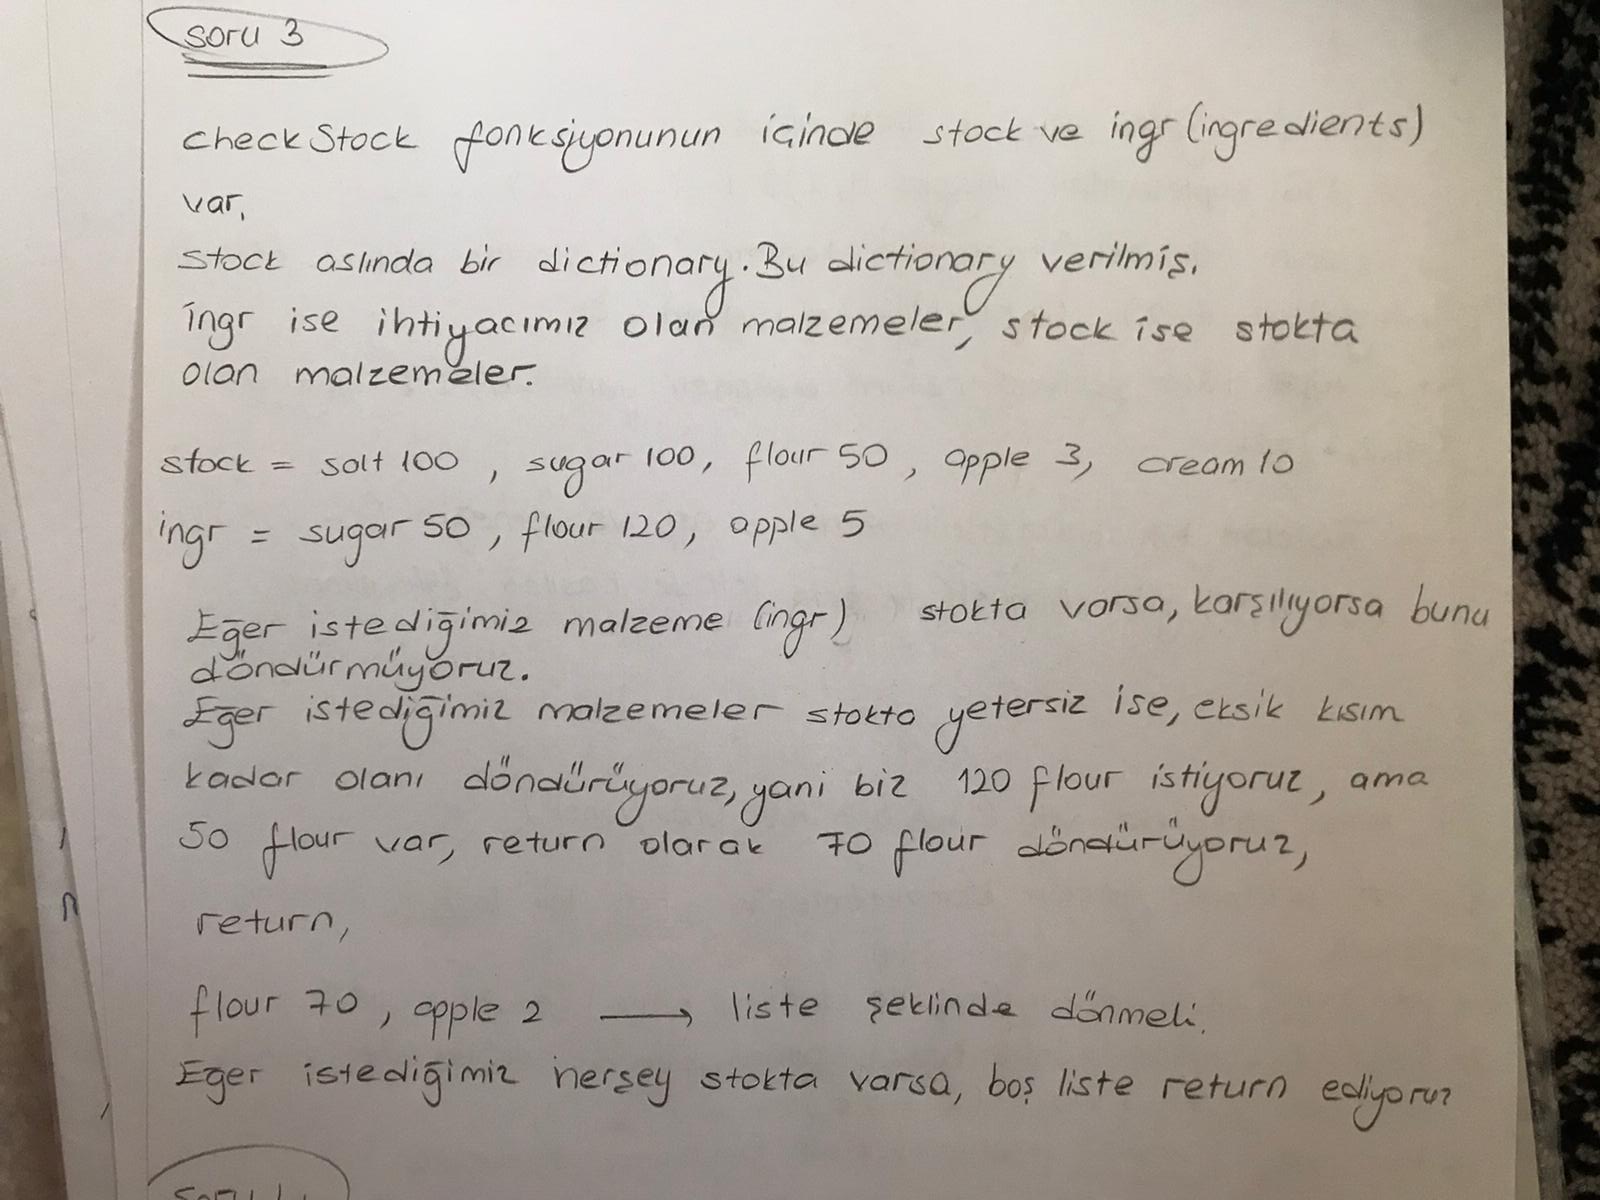 soru 3
checkStock fonksiyonunun içinde stock ve ingr (ingredients)
var,
stock aslında bir dictionary. Bu dictionary verilmiş.
ingr ise ihtiyacımız olan malzemeler, stock ise stokta
olan malzemeler.
stock = salt 100 , sugar 100, flour 50 , apple 3, cream 10
ingr = sugar 50 , flour 120, apple 5
Eğer istediğimiz malzeme (ingr) stokta varsa, karşılıyorsa bunu
döndürmüyoruz.
Eğer istediğimiz malzemeler stokta yetersiz ise, eksik kısım
kadar olanı döndürüyoruz, yani biz 120 flour istiyoruz, ama
50 flour var, return olarak 70 flour döndürüyoruz,
return,
flour 70 , apple 2 → liste şeklinde dönmeli.
Eğer istediğimiz herşey stokta varsa, boş liste return ediyoruz